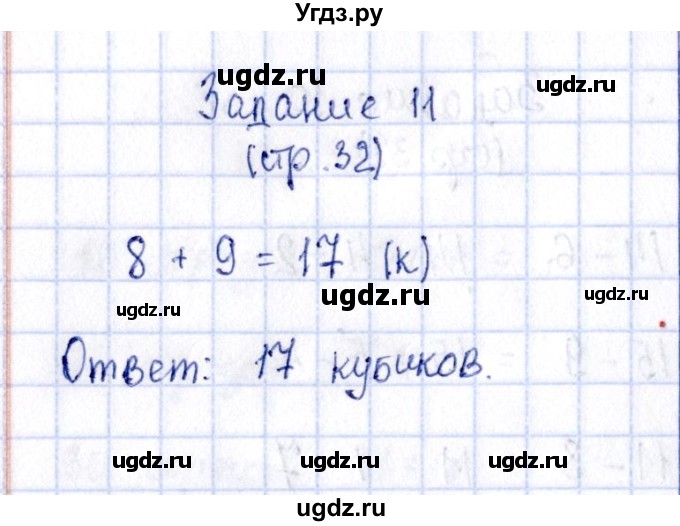 Угдз.ру
ugdz.ru
Задание 11
ugdz.ru
ugdz.ru
(стр. 32)
8 + 9 = 17 (к)
ugdz.ru
ugdz.ru
ugdz.ru
Ответ: 17 кубиков.
ugdz.ru
ugdz.ru
ugdz.ru
ugdz.ru